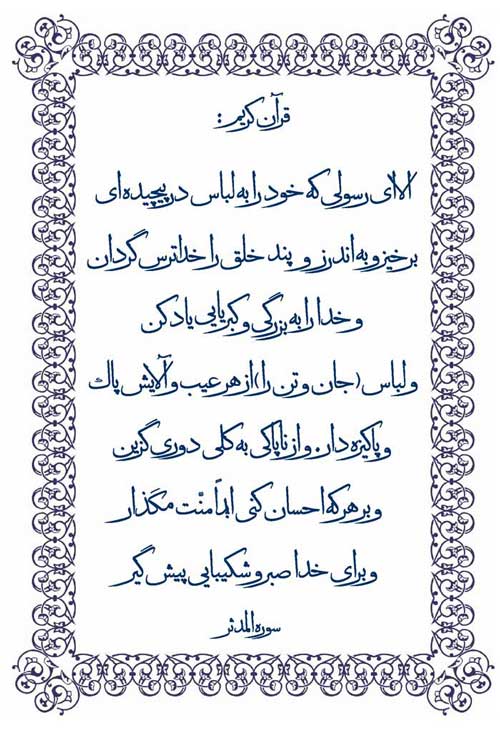 قرآن کریم:
الا ای رسولی که خود را به لباس در پیچیده ای
برخیز و به اندرز و پند خلق را خداترس گردان
و خدا را به بزرگی و کبریایی یاد کن
و لباس (جان و تن را) از هر عیب و آلایش پاک
و پاکیزه دار. و از ناپاکی به کلی دوری گزین
و بر هر که احسان کنی ابداً منّت مگذار
و برای خدا صبر و شکیبایی پیش گیر
سوره المدثر